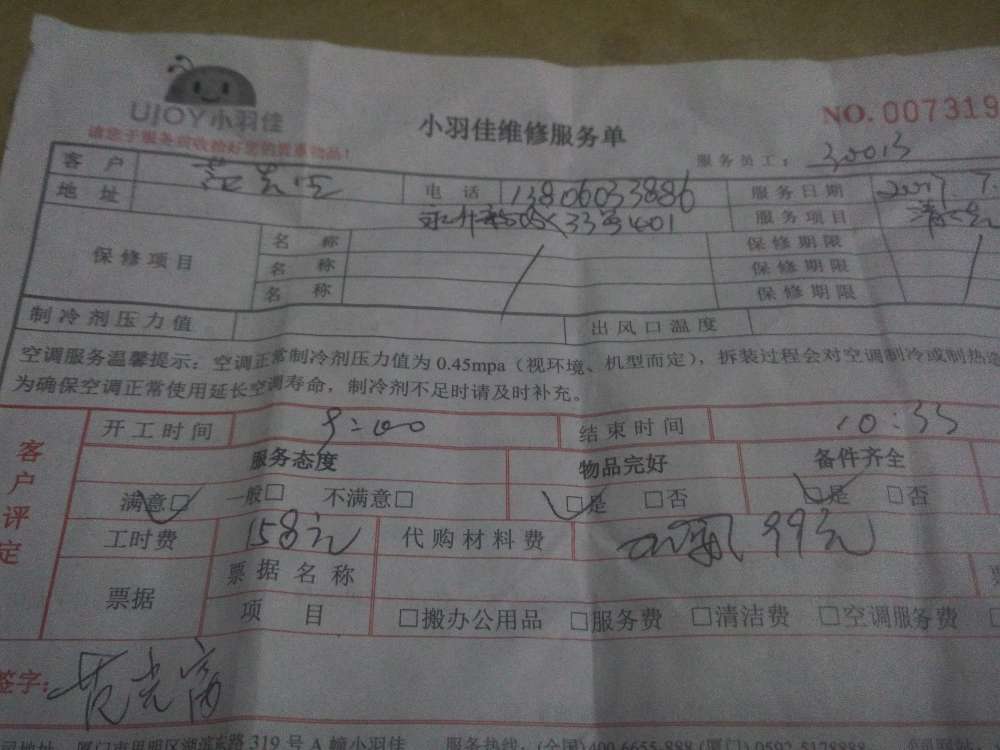 UJOY小羽佳
小羽佳维修服务单
NO. 007319
请您于服务前收拾好您的贵重物品！
服务员工： 30013
客户 电话 13806033886 服务日期 2017.7.
地址 33号401 服务项目
保修项目 名称 保修期限
名称 保修期限
名称 保修期限
制冷剂压力值 出风口温度
空调服务温馨提示：空调正常制冷剂压力值为 0.45mpa（视环境、机型而定），拆装过程会对空调制冷或制热造
为确保空调正常使用延长空调寿命，制冷剂不足时请及时补充。
客户评定
开工时间 9:00 结束时间 10:33
服务态度 物品完好 备件齐全
满意□ 一般□ 不满意□ □是 □否 □是 □否
工时费 158元 代购材料费 99元
票据 票据名称
项目 □搬办公用品 □服务费 □清洁费 □空调服务费
签字：
厦门市思明区湖滨东路 319 号 A 幢小羽佳 服务热线：(全国)400 6655-888 (厦门) 0592